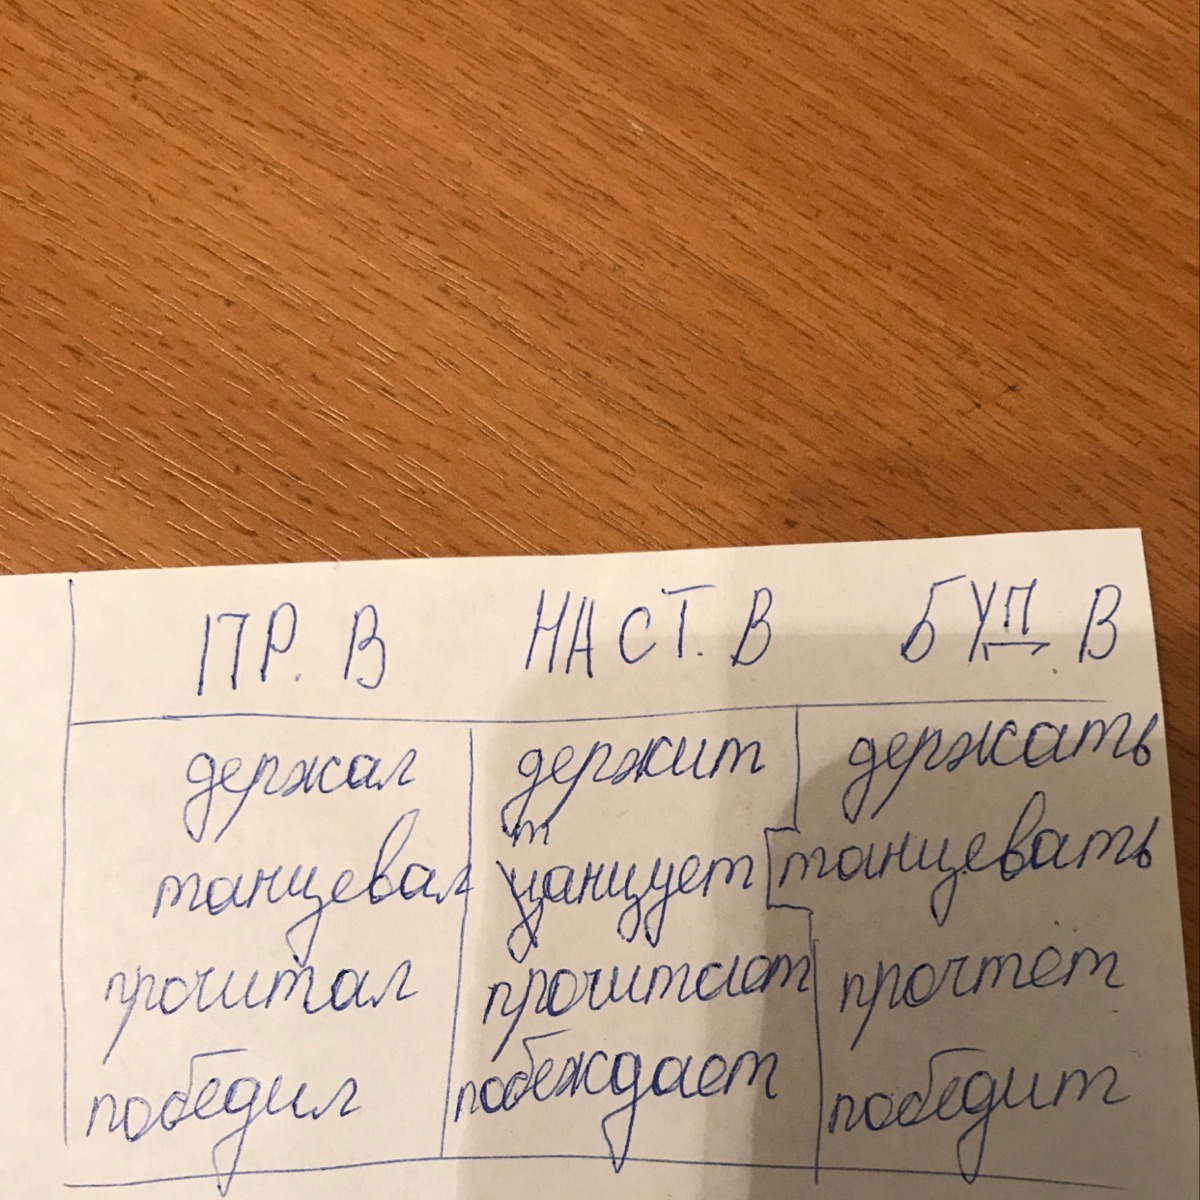 ПР. В НАСТ. В БУД. В
держал держит держать
танцевал танцует танцевать
прочитал прочитает прочтёт
победил побеждает победит